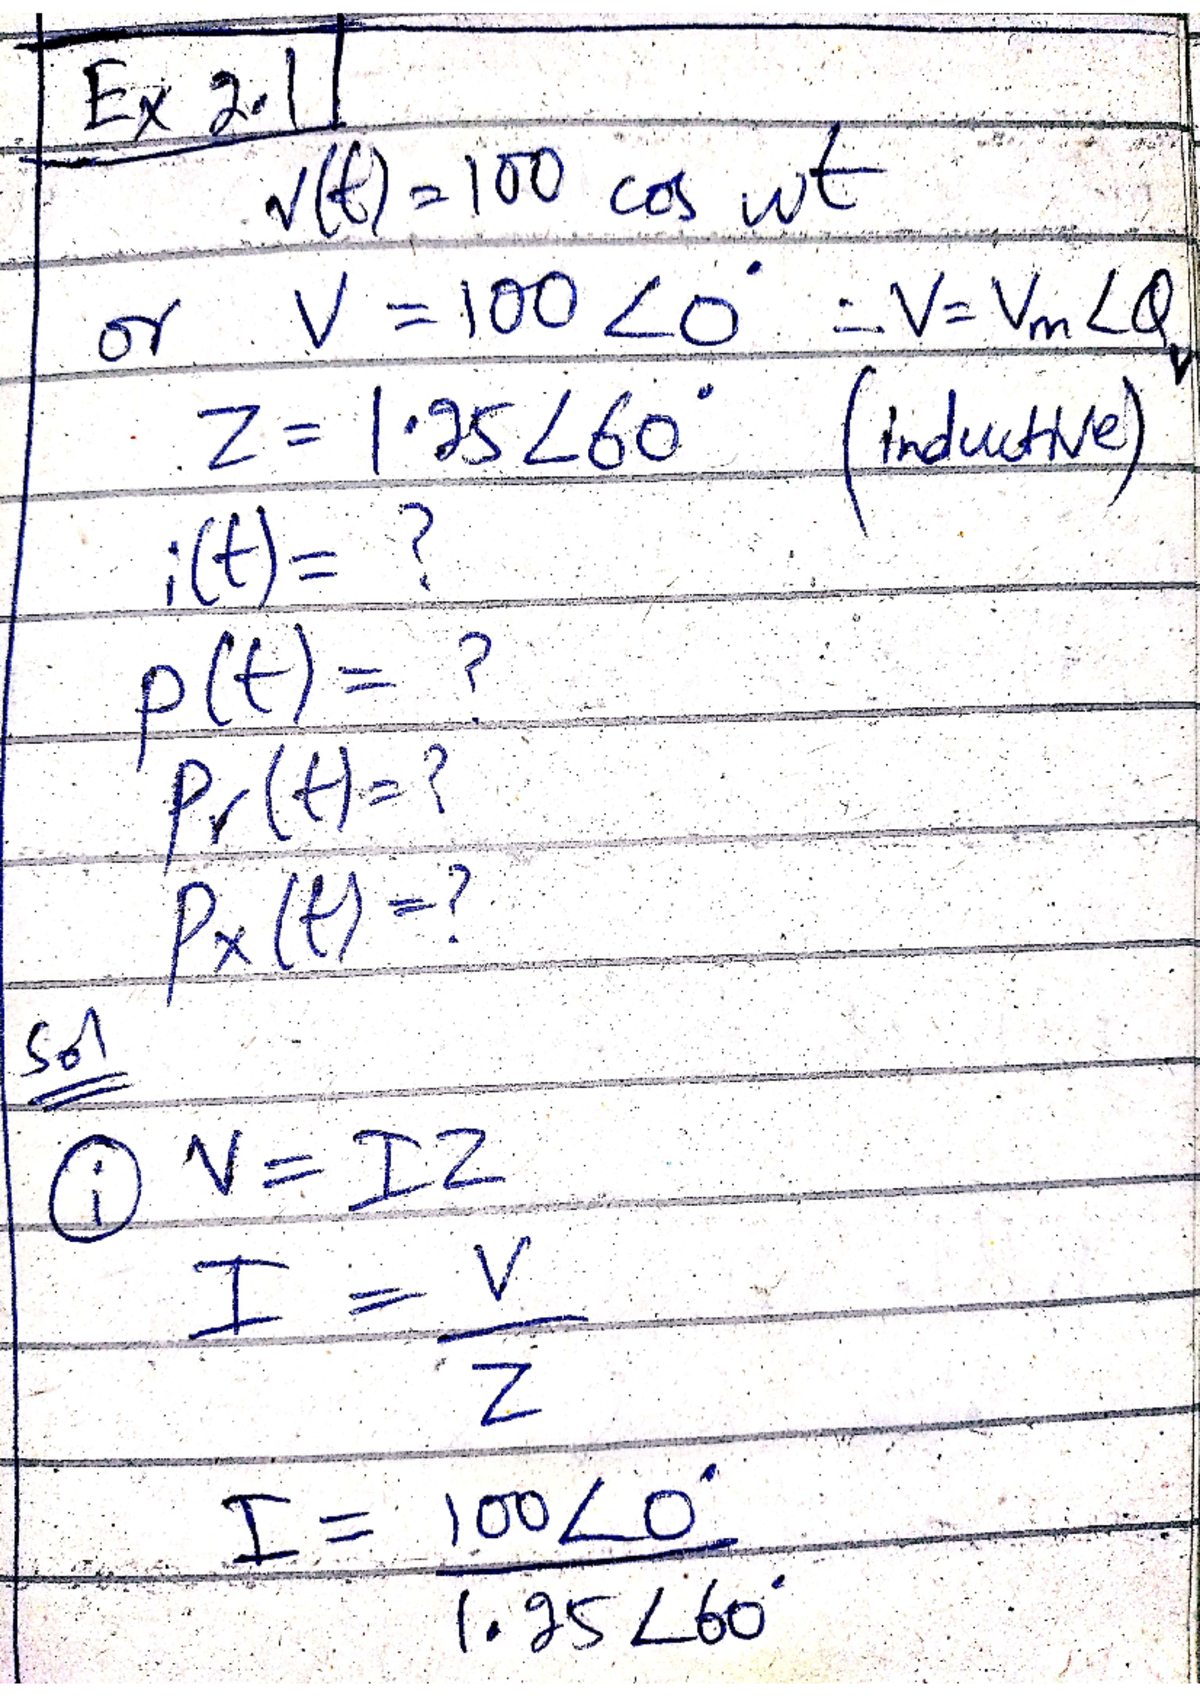 Ex 2.1
v(t) = 100 cos wt
or V = 100 ∠0° ∴ V = Vm ∠Qv
Z = 1.25 ∠60° (inductive)
i(t) = ?
p(t) = ?
Pr(t) = ?
Px(t) = ?
Sol
(i) V = IZ
I = V
Z
I = 100∠0°
1.25∠60°